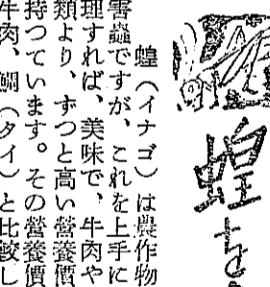 蝗を
蝗（イナゴ）は農作物
害蟲ですが、これを上手に
理すれば、美味で、牛肉や
類より、ずつと高い營養價
持つています。その營養價
牛肉、鯛（タイ）と比較し